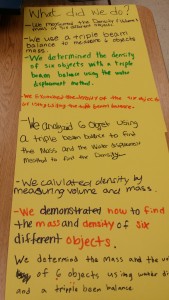 What did we do?
- We measured the Density & Volume
mass of six different objects
- We use a triple beam
balance to measure 6 objects
mass.
- We determined the density
of six objects with a triple
beam balance using the water
displacement method.
the density of the six objects
the triple beam balance.
- We analyzed 6 Object using
a triple beam balance to find
the Mass and the Water displacement
Method to find the Density
- We calculated density by
measuring volume and mass.
- We demonstrated how to find
the mass and density of six
different objects.
We determind the mass and the
of 6 objects using water di
and a triple beam balance